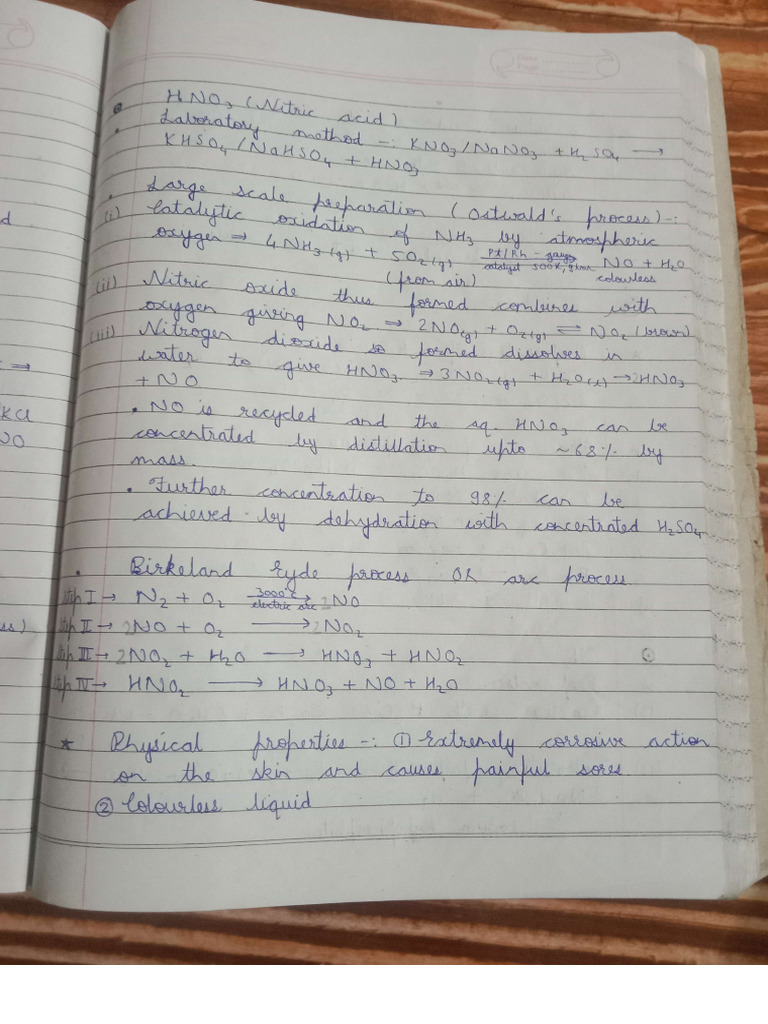 HNO3 (Nitric acid)
• Laboratory method -: KNO3/NaNO3 + H2SO4 ⟶
KHSO4/NaHSO4 + HNO3
• Large scale preparation (Ostwald's process) -:
(i) Catalytic oxidation of NH3 by atmospheric
oxygen ⇒ 4NH3(g) + 5O2(g) Pt/Rh - gauge catalyst 500K, 9 bar NO + H2O
(from air) colourless
(ii) Nitric oxide thus formed combines with
oxygen giving NO2 ⇒ 2NO(g) + O2(g) ⇌ NO2 (brown)
(iii) Nitrogen dioxide so formed dissolves in
water to give HNO3 ⇒ 3NO2(g) + H2O(l) → 2HNO3
+ NO
• NO is recycled and the aq. HNO3 can be
concentrated by distillation upto ~68% by
mass.
• Further concentration to 98% can be
achieved by dehydration with concentrated H2SO4
• Birkeland Eyde process OR arc process
Step I → N2 + O2 3000°C electric arc → 2NO
Step II → 2NO + O2 ⟶ 2NO2
Step III → 2NO2 + H2O ⟶ HNO3 + HNO2
Step IV → HNO2 ⟶ HNO3 + NO + H2O
★ Physical properties -: ① Extremely corrosive action
on the skin and causes painful sores
② Colourless liquid
d
KCl
ss)